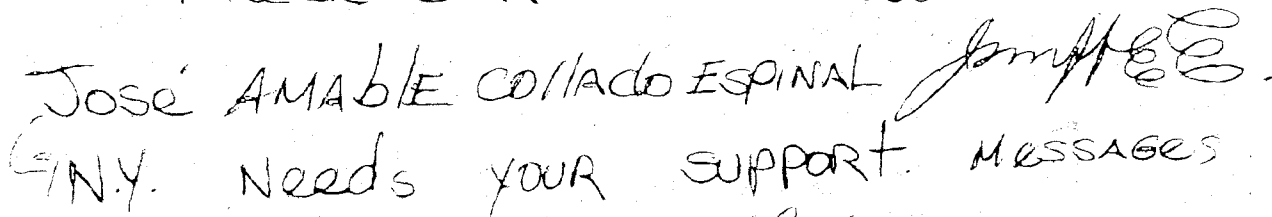 José AMAblE COllAdo ESPINAL
N.Y. Needs YOUR SUPPORt. MeSSAGes